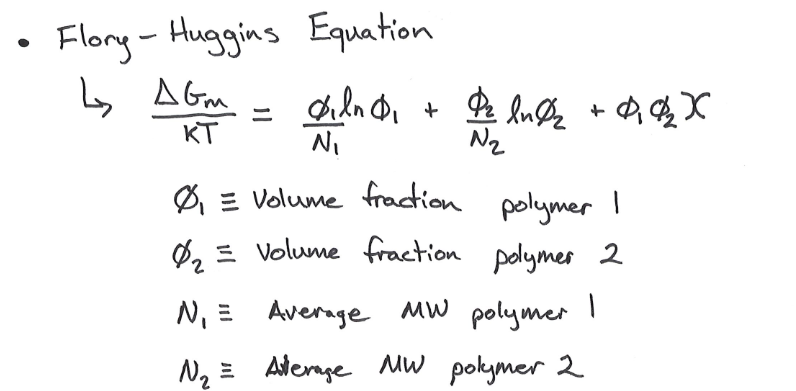 • Flory-Huggins Equation
↳ ΔGm/KT = ϕ₁lnϕ₁/N₁ + ϕ₂/N₂ lnϕ₂ + ϕ₁ϕ₂χ
ϕ₁ ≡ Volume fraction polymer 1
ϕ₂ ≡ Volume fraction polymer 2
N₁ ≡ Average MW polymer 1
N₂ ≡ Average MW polymer 2